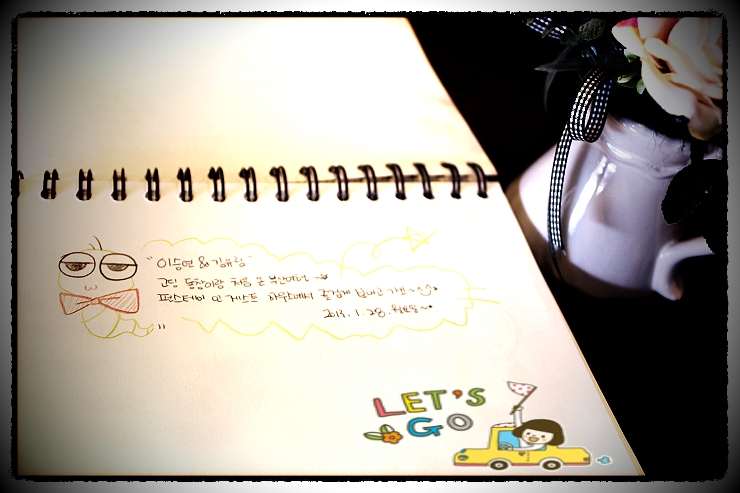 "이승연 & 김유림"
고딩 동창이랑 처음 온 부산여행~
펀스테이 인 게스트 하우스에서 즐겁게 보내고 가요~
2013. 1. 28. 월요일~
LET'S
GO